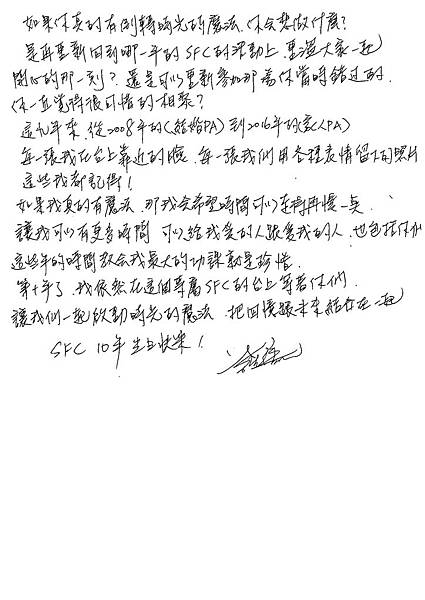 如果你真的有倒轉時光的魔法,你会想做什麼?
是再重新回到哪一年的SFC的活動上,重溫大家一起
開心的那一刻?還是可以重新參加那場你當時錯過的,
你一直覺得很可惜的相聚?
這九年來,從2008年的(結婚PA)到2016年的(家人PA)
每一張我在台上靠近的臉,每一張我們用各種表情留下的照片
這些我都記得!
如果我真的有魔法,那我会希望時間可以走得再慢一矣
讓我可以有更多時間 可以給我愛的人跟愛我的人,也包括你们
這些年的時間教会我最大的功課就是珍惜.
第十年了,我依然在這個專屬SFC的台上等著你們.
讓我們一起啟動時光的魔法,把回憶跟未來結合在一起
SFC 10年生日快樂!